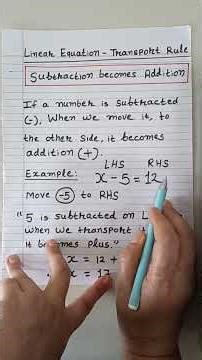 Linear Equation - Transport Rule
Subtraction becomes Addition
If a number is subtracted
(-), When we move it, to
the other side, it becomes
addition (+).
LHS RHS
Example: x - 5 = 12
Move -5 to RHS
"5 is subtracted on L
when we transport
it becomes Plus."
x = 12 +
x = 17